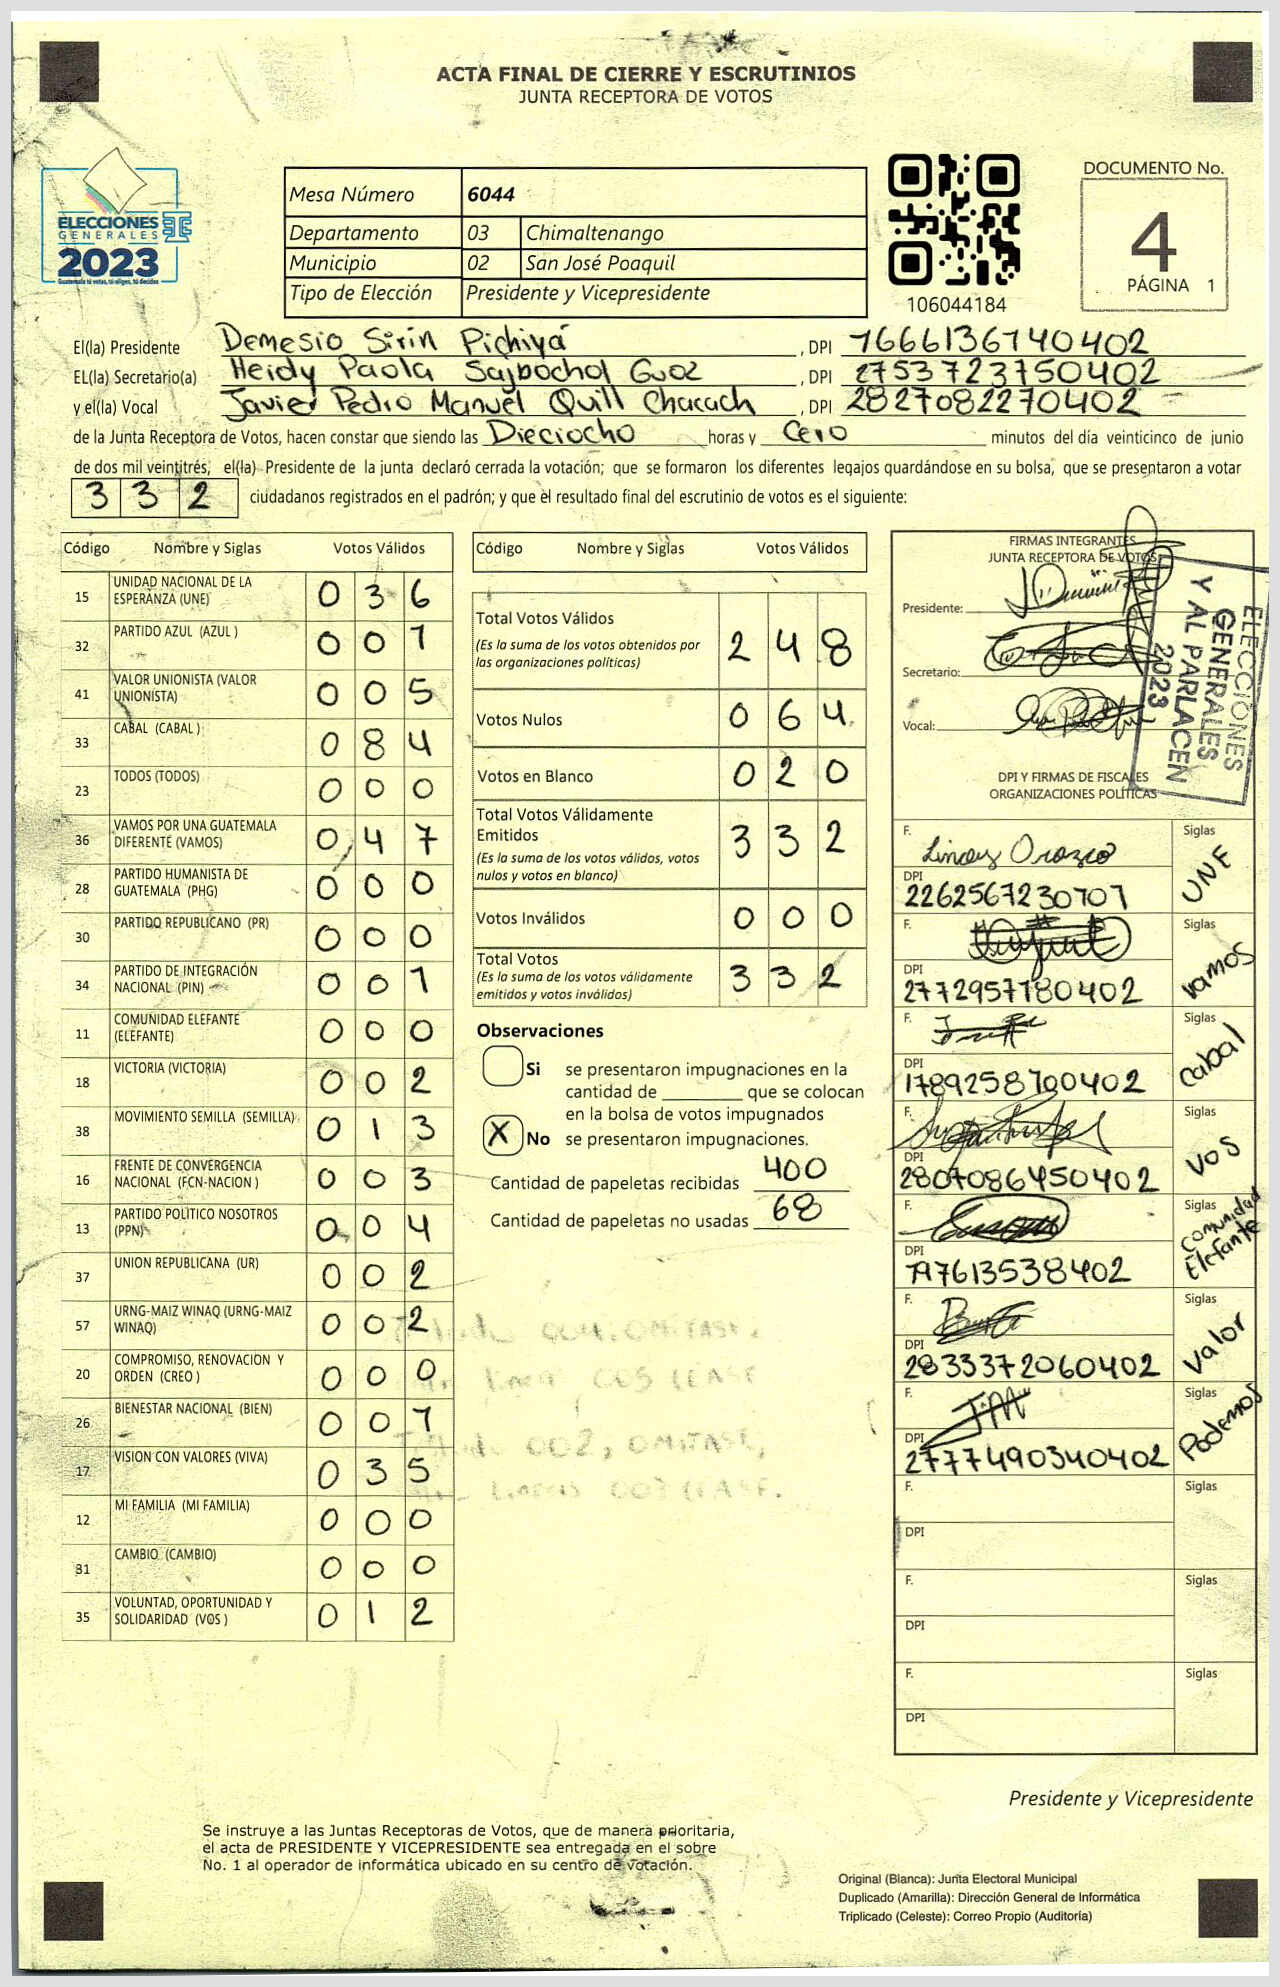 ACTA FINAL DE CIERRE Y ESCRUTINIOS
JUNTA RECEPTORA DE VOTOS
ELECCIONES
GENERALES
2023
Guatemala tú votas, tú eliges, tú decides
Mesa Número 6044
Departamento 03 Chimaltenango
Municipio 02 San José Poaquil
Tipo de Elección Presidente y Vicepresidente
106044184
DOCUMENTO No.
4
PÁGINA 1
El(la) Presidente Demesio Sirín Pichiyá, DPI 1666136740402
EL(la) Secretario(a) Heidy Paola Sajbochol Guoz, DPI 2753723750402
y el(la) Vocal Javier Pedro Manuel Quill Chacach, DPI 2827082270402
de la Junta Receptora de Votos, hacen constar que siendo las Dieciocho horas y Cero minutos del día veinticinco de junio
de dos mil veintitrés, el(la) Presidente de la junta declaró cerrada la votación; que se formaron los diferentes legajos guardándose en su bolsa, que se presentaron a votar
332 ciudadanos registrados en el padrón; y que el resultado final del escrutinio de votos es el siguiente:
Código Nombre y Siglas Votos Válidos
15 UNIDAD NACIONAL DE LA ESPERANZA (UNE) 036
32 PARTIDO AZUL (AZUL ) 001
41 VALOR UNIONISTA (VALOR UNIONISTA) 005
33 CABAL (CABAL ) 084
23 TODOS (TODOS) 000
36 VAMOS POR UNA GUATEMALA DIFERENTE (VAMOS) 047
28 PARTIDO HUMANISTA DE GUATEMALA (PHG) 000
30 PARTIDO REPUBLICANO (PR) 000
34 PARTIDO DE INTEGRACIÓN NACIONAL (PIN) 001
11 COMUNIDAD ELEFANTE (ELEFANTE) 000
18 VICTORIA (VICTORIA) 002
38 MOVIMIENTO SEMILLA (SEMILLA) 013
16 FRENTE DE CONVERGENCIA NACIONAL (FCN-NACION ) 003
13 PARTIDO POLITICO NOSOTROS (PPN) 004
37 UNION REPUBLICANA (UR) 002
57 URNG-MAIZ WINAQ (URNG-MAIZ WINAQ) 002
20 COMPROMISO, RENOVACION Y ORDEN (CREO ) 000
26 BIENESTAR NACIONAL (BIEN) 001
17 VISION CON VALORES (VIVA) 035
12 MI FAMILIA (MI FAMILIA) 000
31 CAMBIO (CAMBIO) 000
35 VOLUNTAD, OPORTUNIDAD Y SOLIDARIDAD (VOS ) 012
Código Nombre y Siglas Votos Válidos
Total Votos Válidos 248
(Es la suma de los votos obtenidos por
las organizaciones políticas)
Votos Nulos 064
Votos en Blanco 020
Total Votos Válidamente
Emitidos 332
(Es la suma de los votos válidos, votos
nulos y votos en blanco)
Votos Inválidos 000
Total Votos 332
(Es la suma de los votos válidamente
emitidos y votos inválidos)
Observaciones
Si se presentaron impugnaciones en la
cantidad de ________ que se colocan
en la bolsa de votos impugnados
X No se presentaron impugnaciones.
Cantidad de papeletas recibidas 400
Cantidad de papeletas no usadas 68
004. OMITASE.
Linea, 005 LEASE
002, OMITASE,
Lineas 001 LEASE.
FIRMAS INTEGRANTES
JUNTA RECEPTORA DE VOTOS
Presidente:
Secretario:
Vocal:
ELECCIONES
GENERALES
Y AL PARLACEN
2023
DPI Y FIRMAS DE FISCALES
ORGANIZACIONES POLÍTICAS
F. Lindy Orozco Siglas UNE
DPI 2262567230101
F. Siglas Vamos
DPI 2772957180402
F. Siglas Cabal
DPI 1789258700402
F. Siglas VOS
DPI 2807086450402
F. Siglas Comunidad Elefante
DPI 797613538402
F. Siglas Valor
DPI 2833372060402
F. Siglas Podemos
DPI 2777490340402
F. Siglas
DPI
F. Siglas
DPI
F. Siglas
DPI
Presidente y Vicepresidente
Se instruye a las Juntas Receptoras de Votos, que de manera prioritaria,
el acta de PRESIDENTE Y VICEPRESIDENTE sea entregada en el sobre
No. 1 al operador de informática ubicado en su centro de votación.
Original (Blanca): Junta Electoral Municipal
Duplicado (Amarilla): Dirección General de Informática
Triplicado (Celeste): Correo Propio (Auditoría)